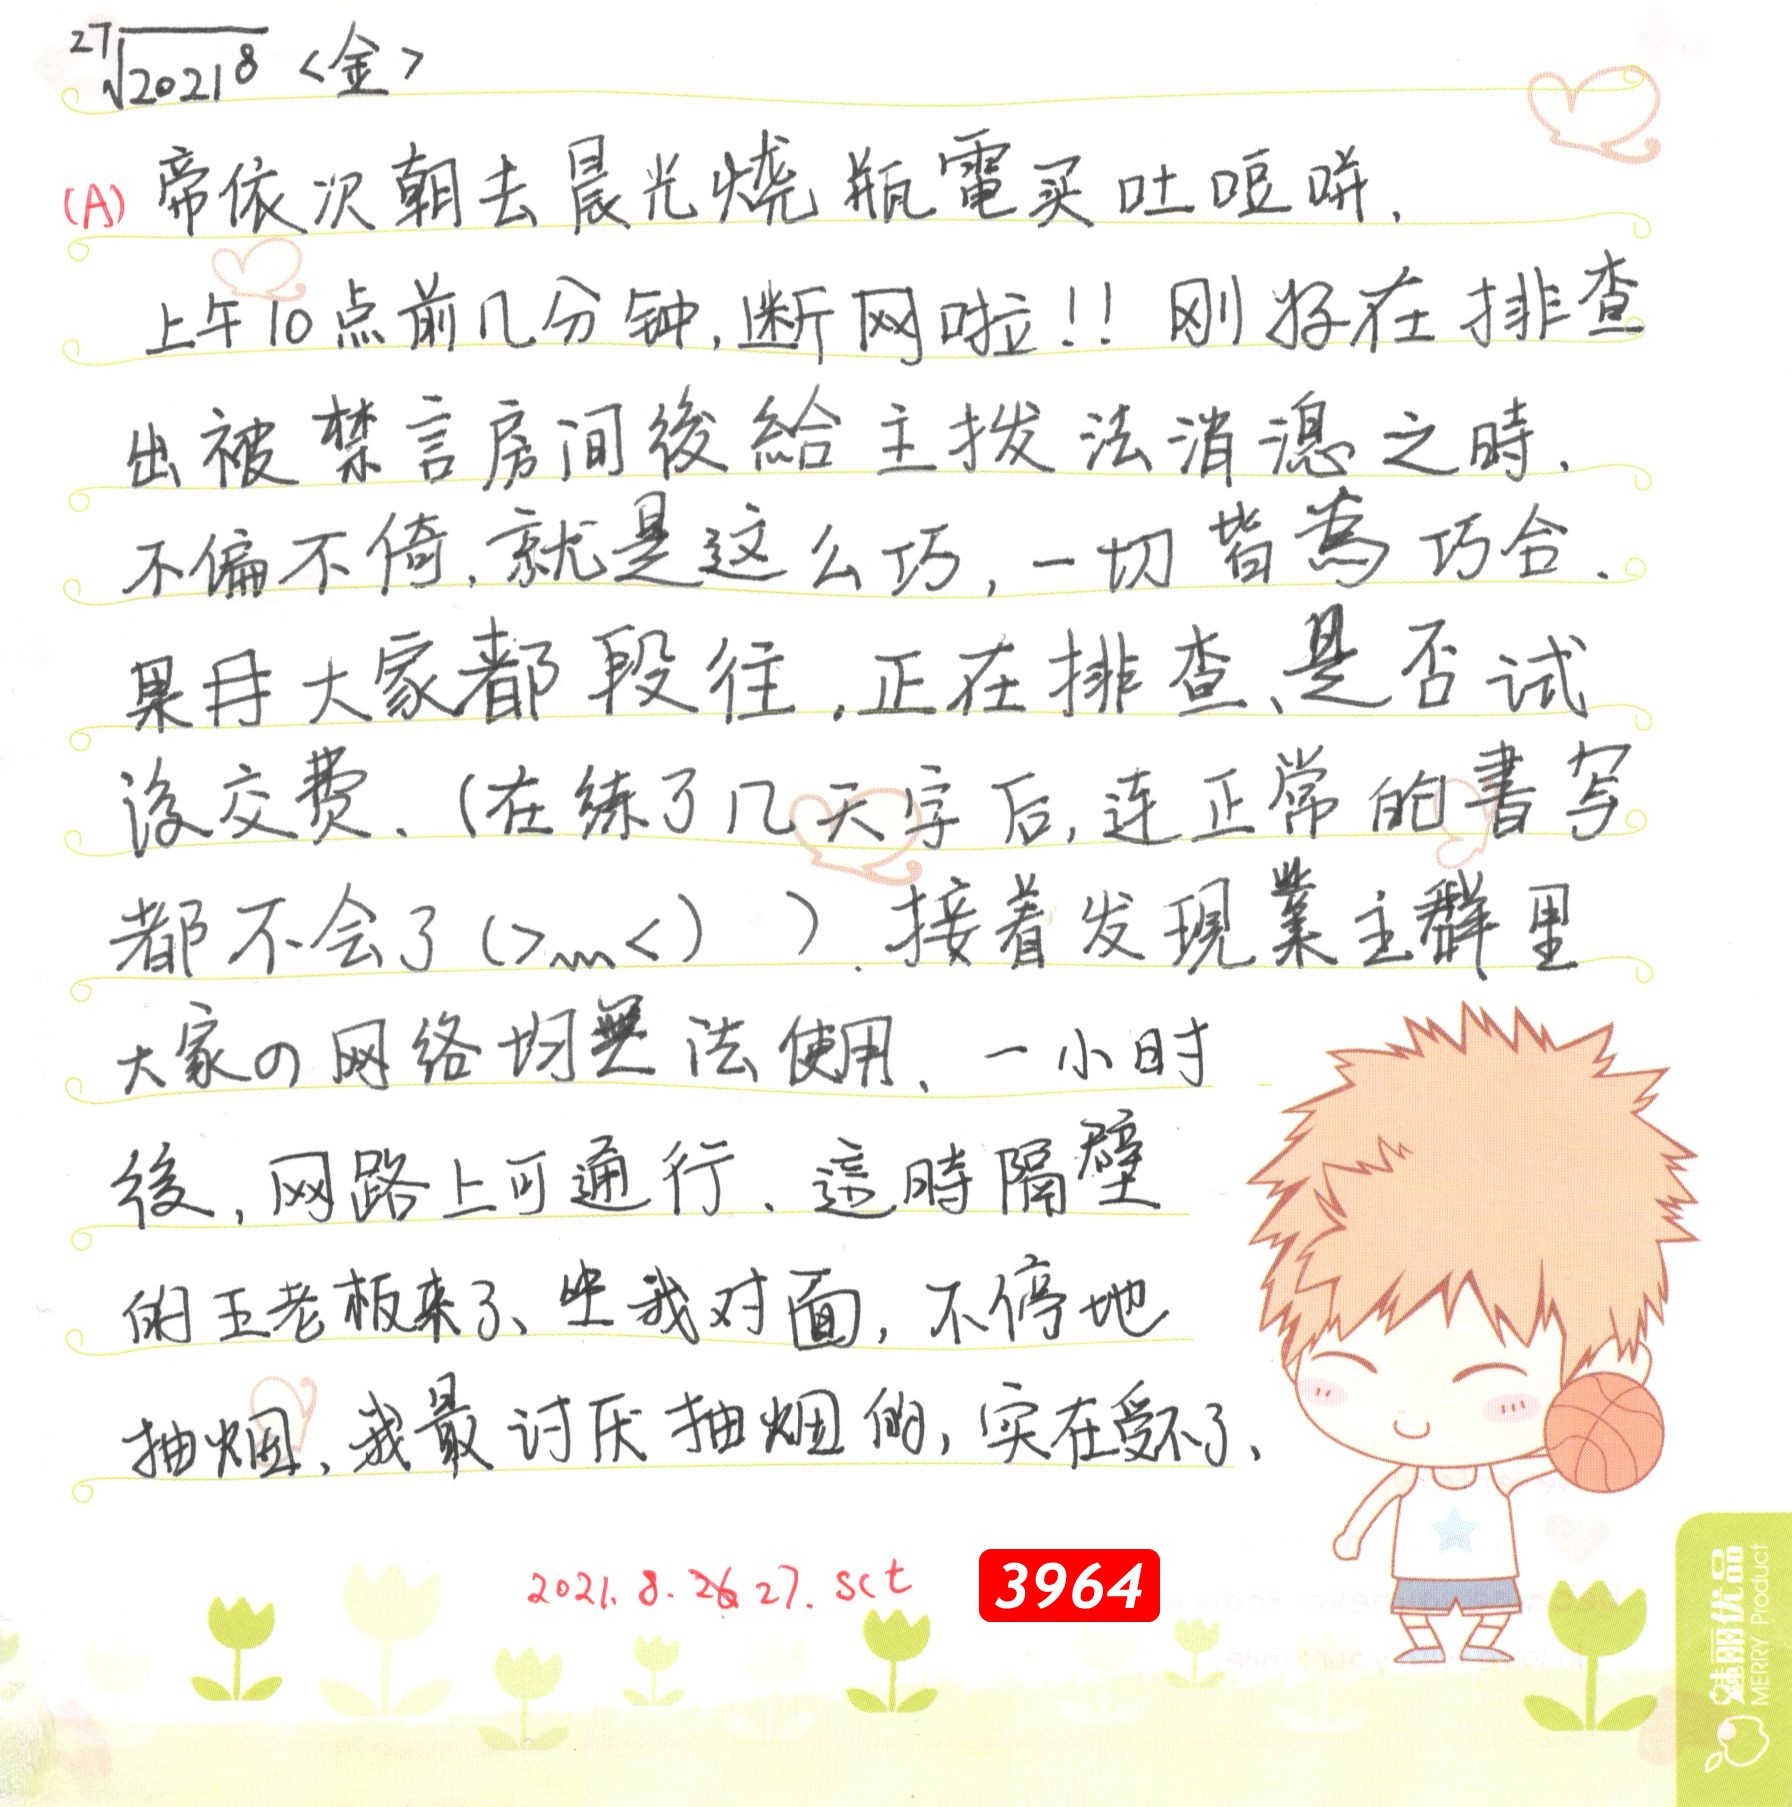 27√2021⁸ <金>
(A) 帝依次朝去晨光燒瓶電买吐哣哄.
上午10点前几分钟,断网啦!! 刚好在排查
出被禁言房间後給主拨法消息之時.
不偏不倚,就是这么巧,一切皆為巧合.
果毋大家都段往,正在排查、是否试
後交费.(在练了几天字后,连正常的書写
都不会了(>﹏<) ).接着发現業主群里
大家の网络均無法使用、一小时
後,网路上可通行、這時隔壁
的王老板来了、坐我对面,不停地
抽烟、我最讨厌抽烟的,实在受不了、
2021.8.27. sct
3964
魅丽优品
MERRY Product